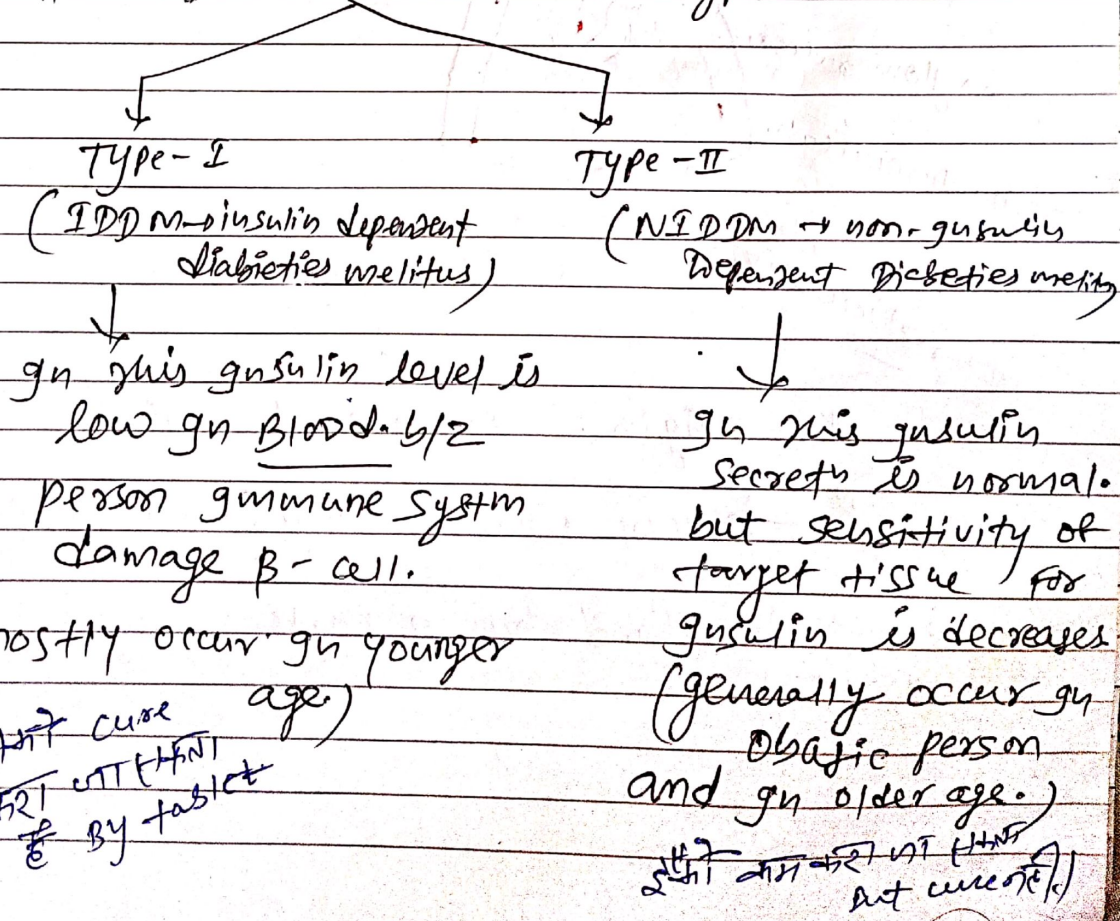 Type - I
(IDDM → insulin dependent
diabieties melitus)
In this Insulin level is
low In Blood. b/z
person Immune systm
damage β - cell.
mostly occur In younger
age.)
cure
करा जा सकता
है By tablet
Type - II
(NIDDM → non-Insulin
Dependent Diabeties melitus
In this Insulin
secretn is normal.
but sensitivity of
target tissue for
Insulin is decreases
(generally occur In
person
and In older age.)
इसको कम करा जा सकता
but cure नहीं)